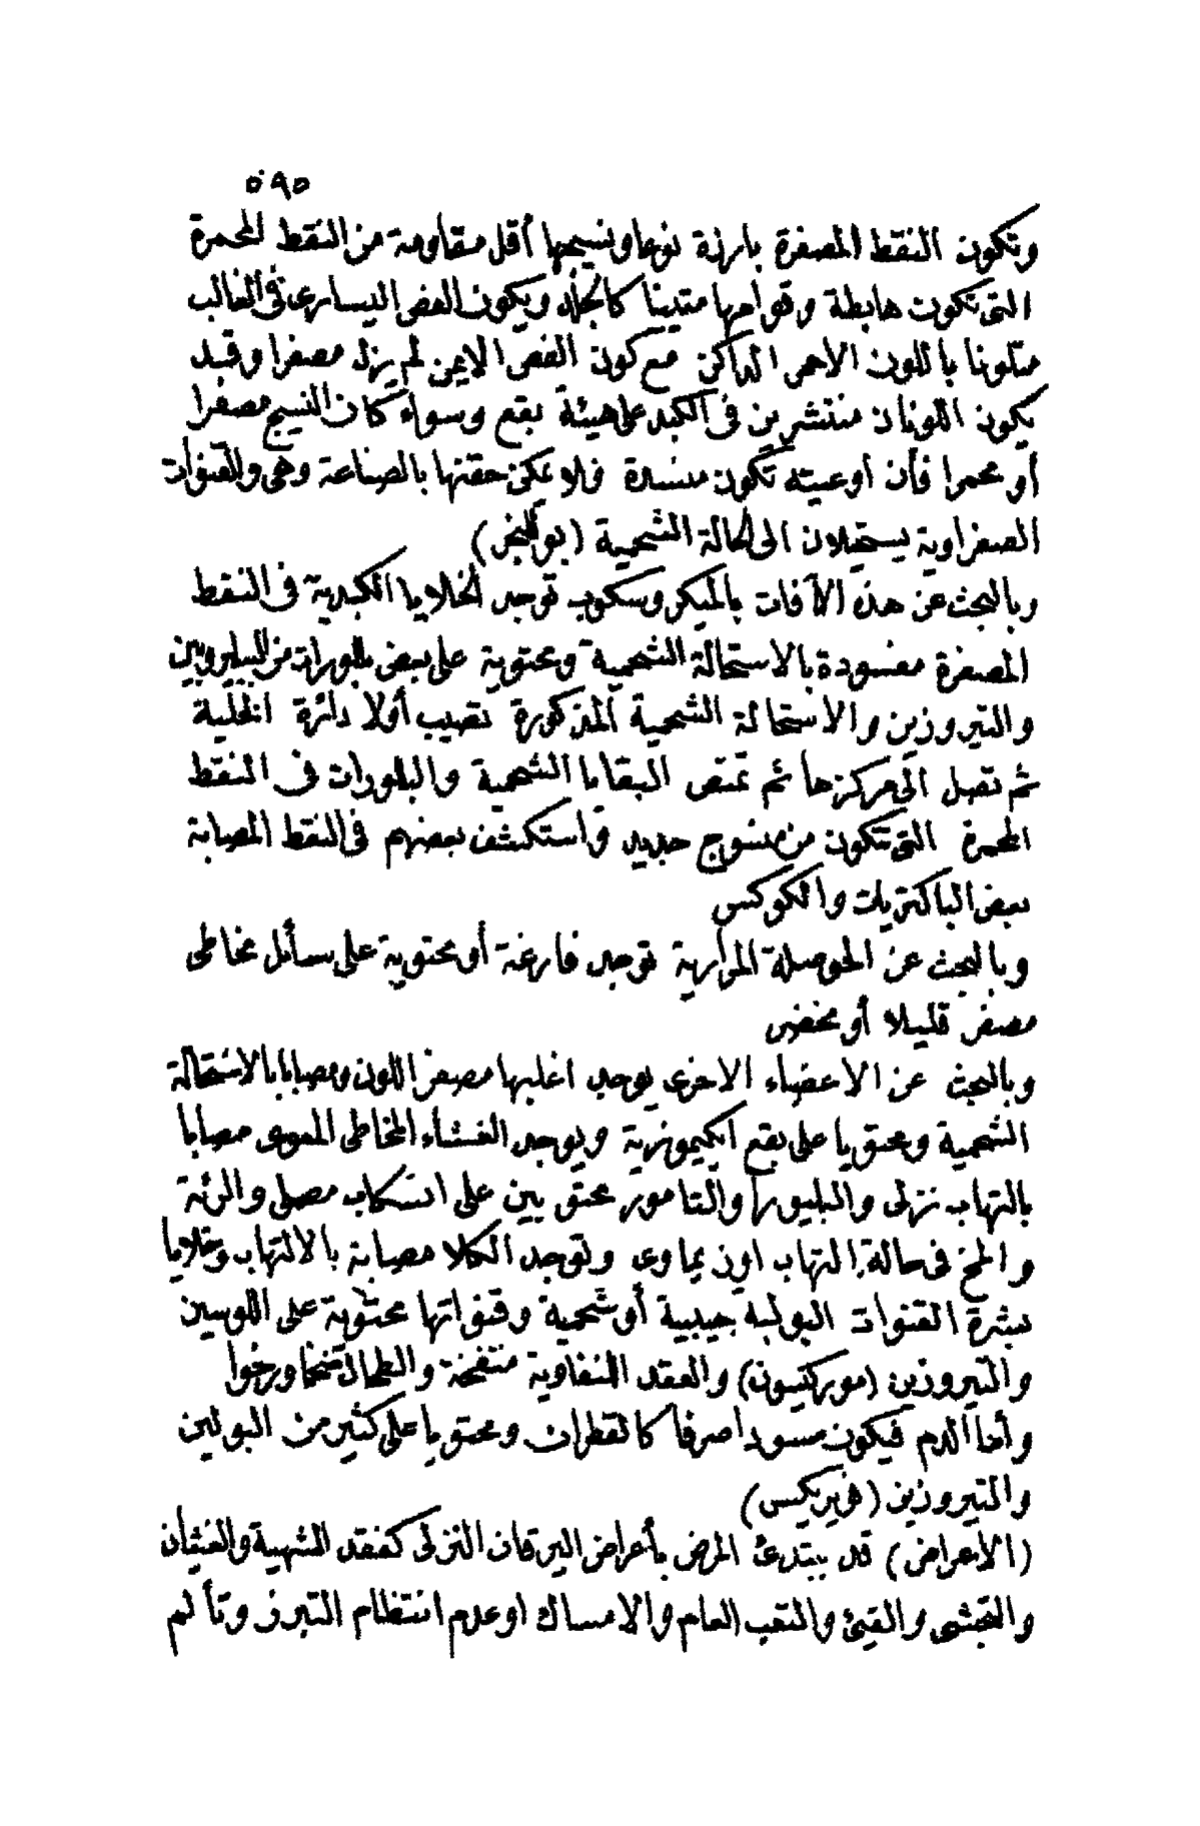 ٥٩٥
وتكون النقط المصفرة بارزة نوعا ونسيجها أقل مقاومة من النقط المحمرة
التى تكون هابطة وقوامها متينا كالجلد ويكون الفص اليسارى فى الغالب
متلونا باللون الاحمر الداكن مع كون الفص الايمن لم يزل مصفرا وقد
يكون اللونان منتشرين فى الكبد على هيئة بقع وسواء كان النسيج مصفرا
أو محمرا فأن أوعيته تكون منسدة ولا يمكن حقنها بالصناعة وهى والقنوات
الصفراوية يستحيلان الى الحالة الشحمية
وبالبحث عن هذه الآفات بالميكروسكوب توجد الخلايا الكبدية فى النقط
المصفرة مفسودة بالاستحالة الشحمية ومحتوية على بعض بلورات من البيليروبين
والتيروزين والاستحالة الشحمية المذكورة تصيب أولا دائرة الخلية
ثم تصل الى مركزها ثم تمتص البقايا الشحمية والبلورات فى النقط
المحمرة التى تتكون من منسوج جديد واستكشف بعضهم فى النقط المصابة
بعض الباكتريات والكوكس
وبالبحث عن الحوصلة المرارية توجد فارغة أو محتوية على سائل مخاطى
مصفر قليلا أو مخضر
وبالبحث عن الاعضاء الاخرى يوجد اغلبها مصفر اللون ومصابا بالاستحالة
الشحمية ومحتويا على بقع ايكيموزية ويوجد الغشاء المخاطى المعوى مصابا
بالتهاب نزلى والبليورا والتامور محتويين على انسكاب مصلى والرئة
والمخ فى حالة التهاب اوزيماوى وتوجد الكلا مصابة بالالتهاب وخلايا
بشرة القنوات البولية حبيبية أو شحمية وقنواتها محتوية على اللوسين
والتيروزين (موركتيون) والعقد اللنفاوية منتفخة والطحال ضخما ورخوا
وأما الدم فيكون مسودا صرفا كالقطران ومحتويا على كثير من البولين
والتيروزين (فريريكس)
(الأعراض) قد يبتدئ المرض بأعراض اليرقان النزلى كفقد الشهية والغثيان
والتجشى والقيئ والتعب العام والامساك او عدم انتظام التبرز وتألم